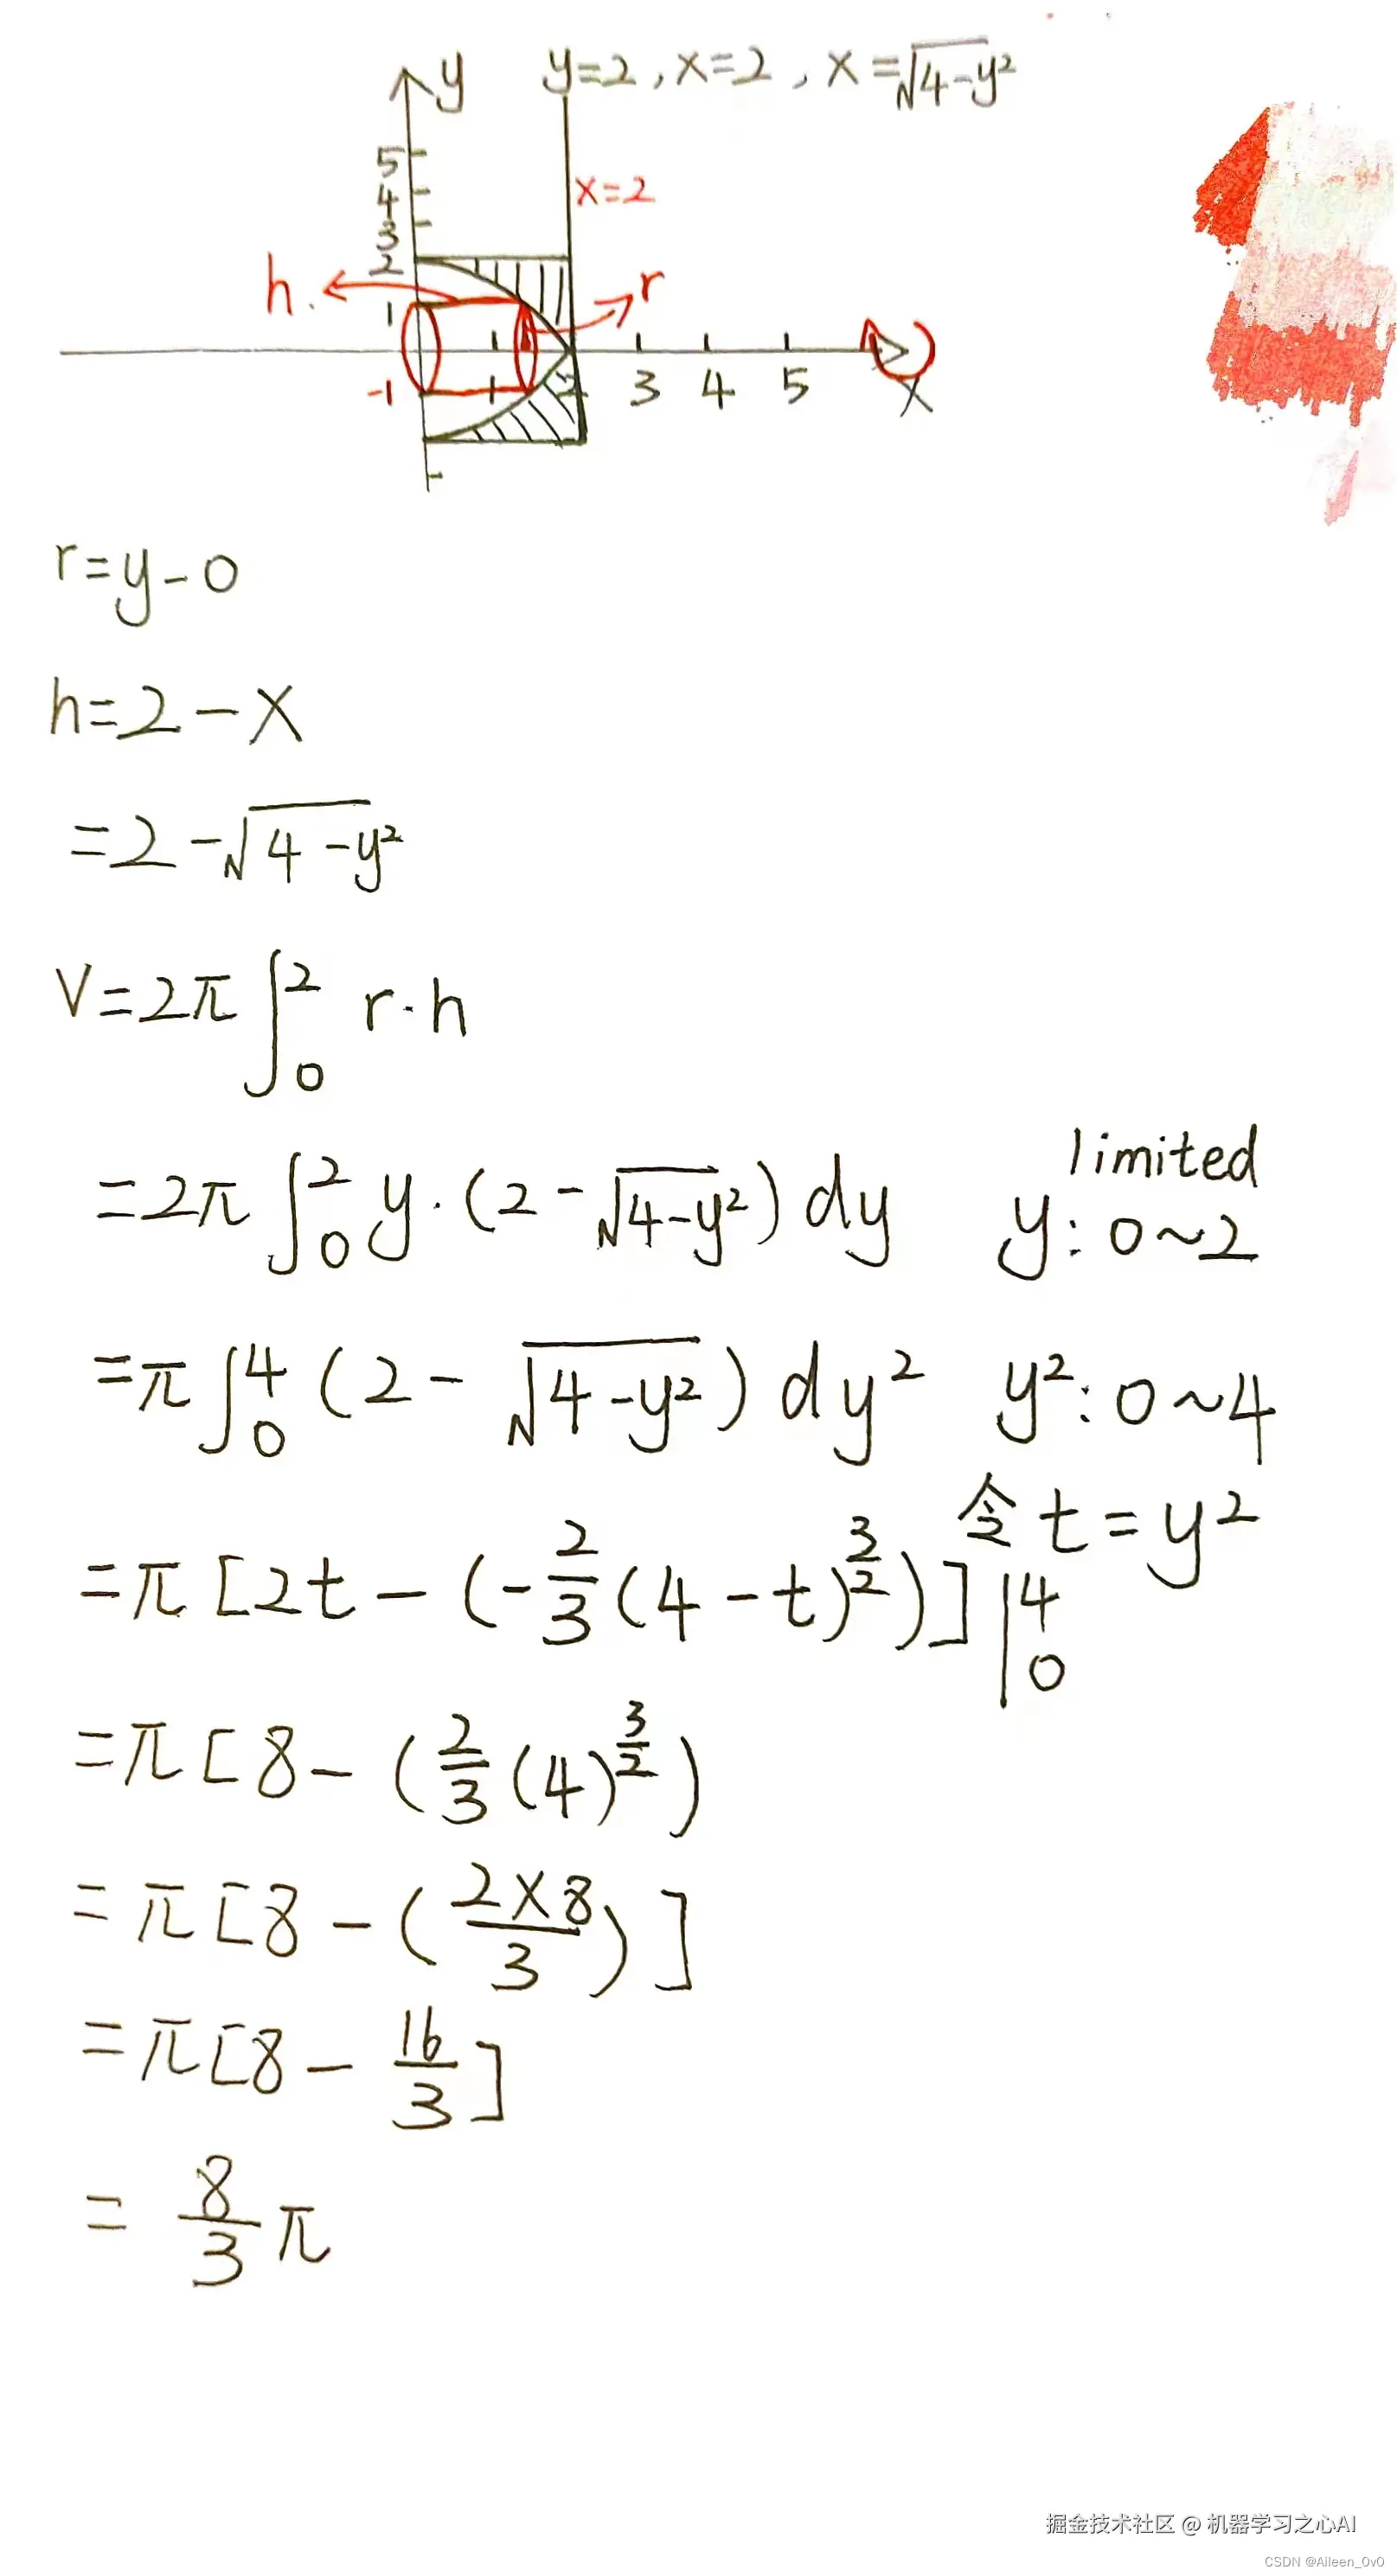 y=2 , x=2 , x=√4-y²
y
5
4
x=2
3
2
h.
r
1
-1
1 2 3 4 5
x
r=y-0
h=2-x
=2-√4-y²
V=2π∫₀² r·h
limited
=2π∫₀² y·(2-√4-y²)dy y:0~2
=π∫₀⁴(2-√4-y²)dy² y²:0~4
令t=y²
=π[2t-(-2/3(4-t)^3/2)]|₀⁴
=π[8-(2/3(4)^3/2)
=π[8-(2×8/3)]
=π[8-16/3]
=8/3π
掘金技术社区 @ 机器学习之心AI
CSDN @Aileen_0v0